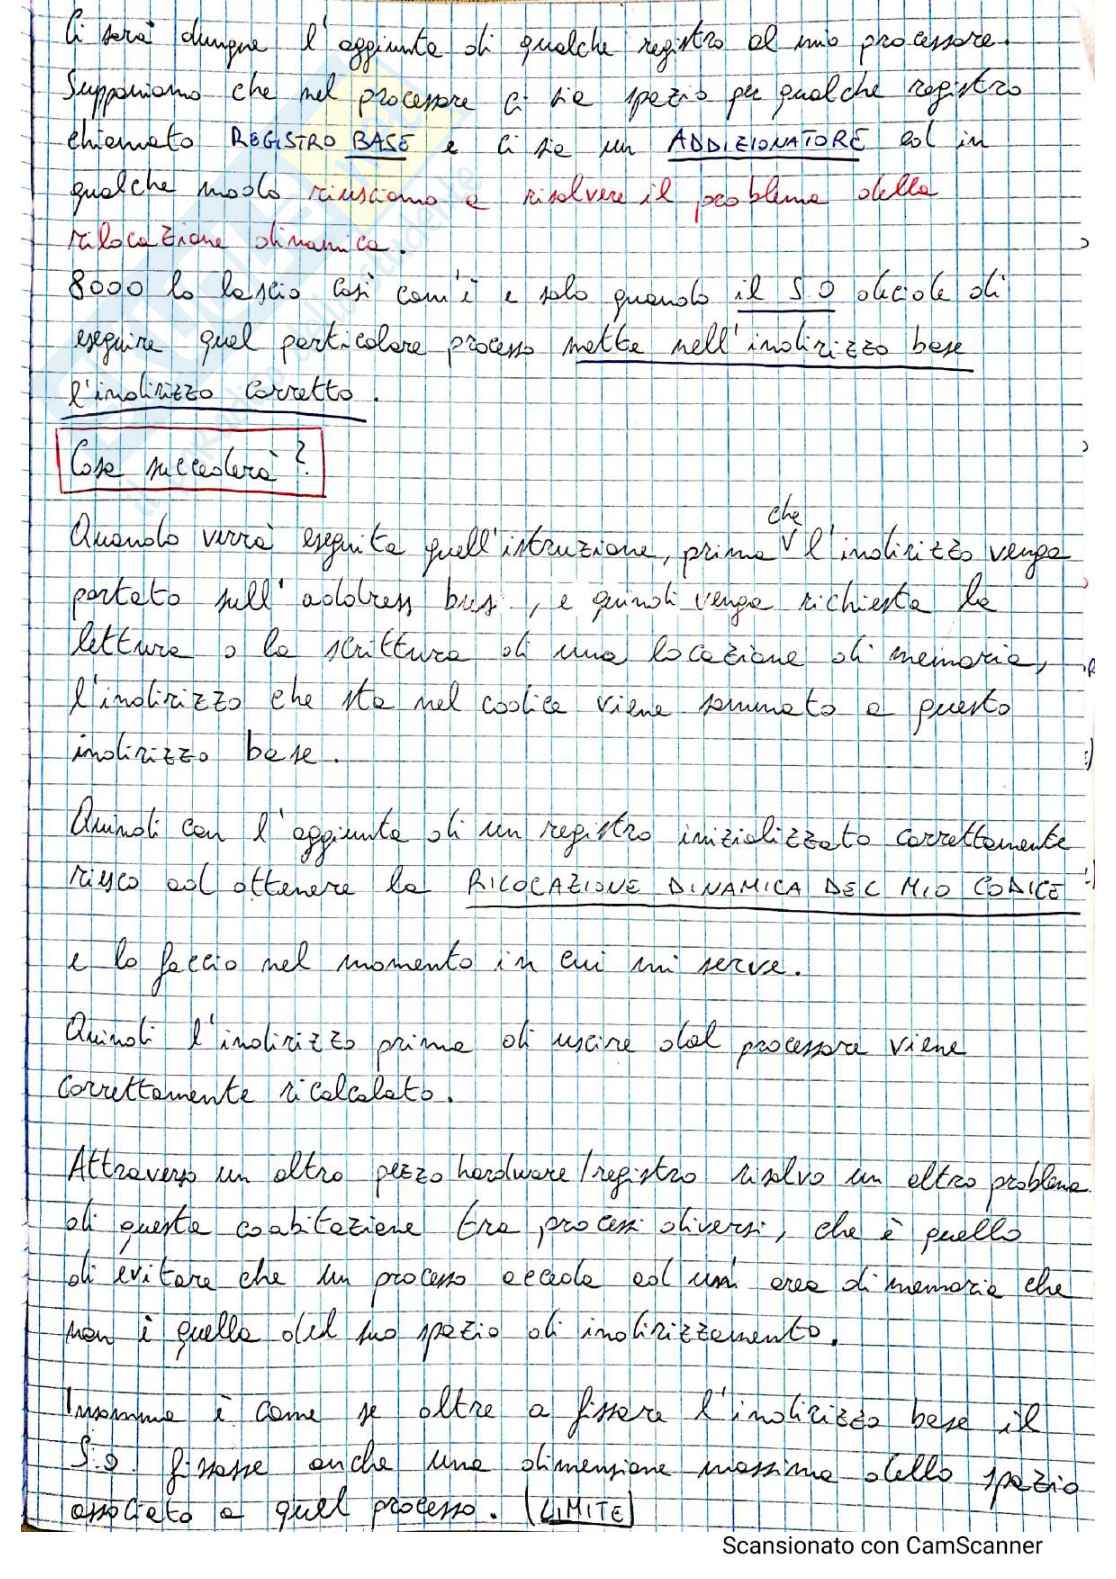 Ci sarà dunque l'aggiunta di qualche registro al mio processore.
Supponiamo che nel processore ci sia spazio per qualche registro
chiamato REGISTRO BASE e ci sia un ADDIZIONATORE ed in
qualche modo riusciamo a risolvere il problema della
rilocazione dinamica.
8000 lo lascio così com'è e solo quando il S.O decide di
eseguire quel particolare processo mette nell'indirizzo base
l'indirizzo corretto.
Cosa succederà?
Quando verrà eseguita quell'istruzione, prima che l'indirizzo venga
portato sull'address bus, e quindi venga richiesta la
lettura o la scrittura di una locazione di memoria,
l'indirizzo che sta nel codice viene sommato a questo
indirizzo base.
Quindi con l'aggiunta di un registro inizializzato correttamente
riesco ad ottenere la RILOCAZIONE DINAMICA DEL MIO CODICE
e lo faccio nel momento in cui mi serve.
Quindi l'indirizzo prima di uscire dal processore viene
correttamente ricalcolato.
Attraverso un altro pezzo hardware/registro risolvo un altro problema
di questa coabitazione tra processi diversi, che è quello
di evitare che un processo acceda ad un'area di memoria che
non è quella del suo spazio di indirizzamento.
Insomma è come se oltre a fissare l'indirizzo base il
S.O. fissasse anche una dimensione massima dello spazio
associato a quel processo. (LIMITE)
Scansionato con CamScanner